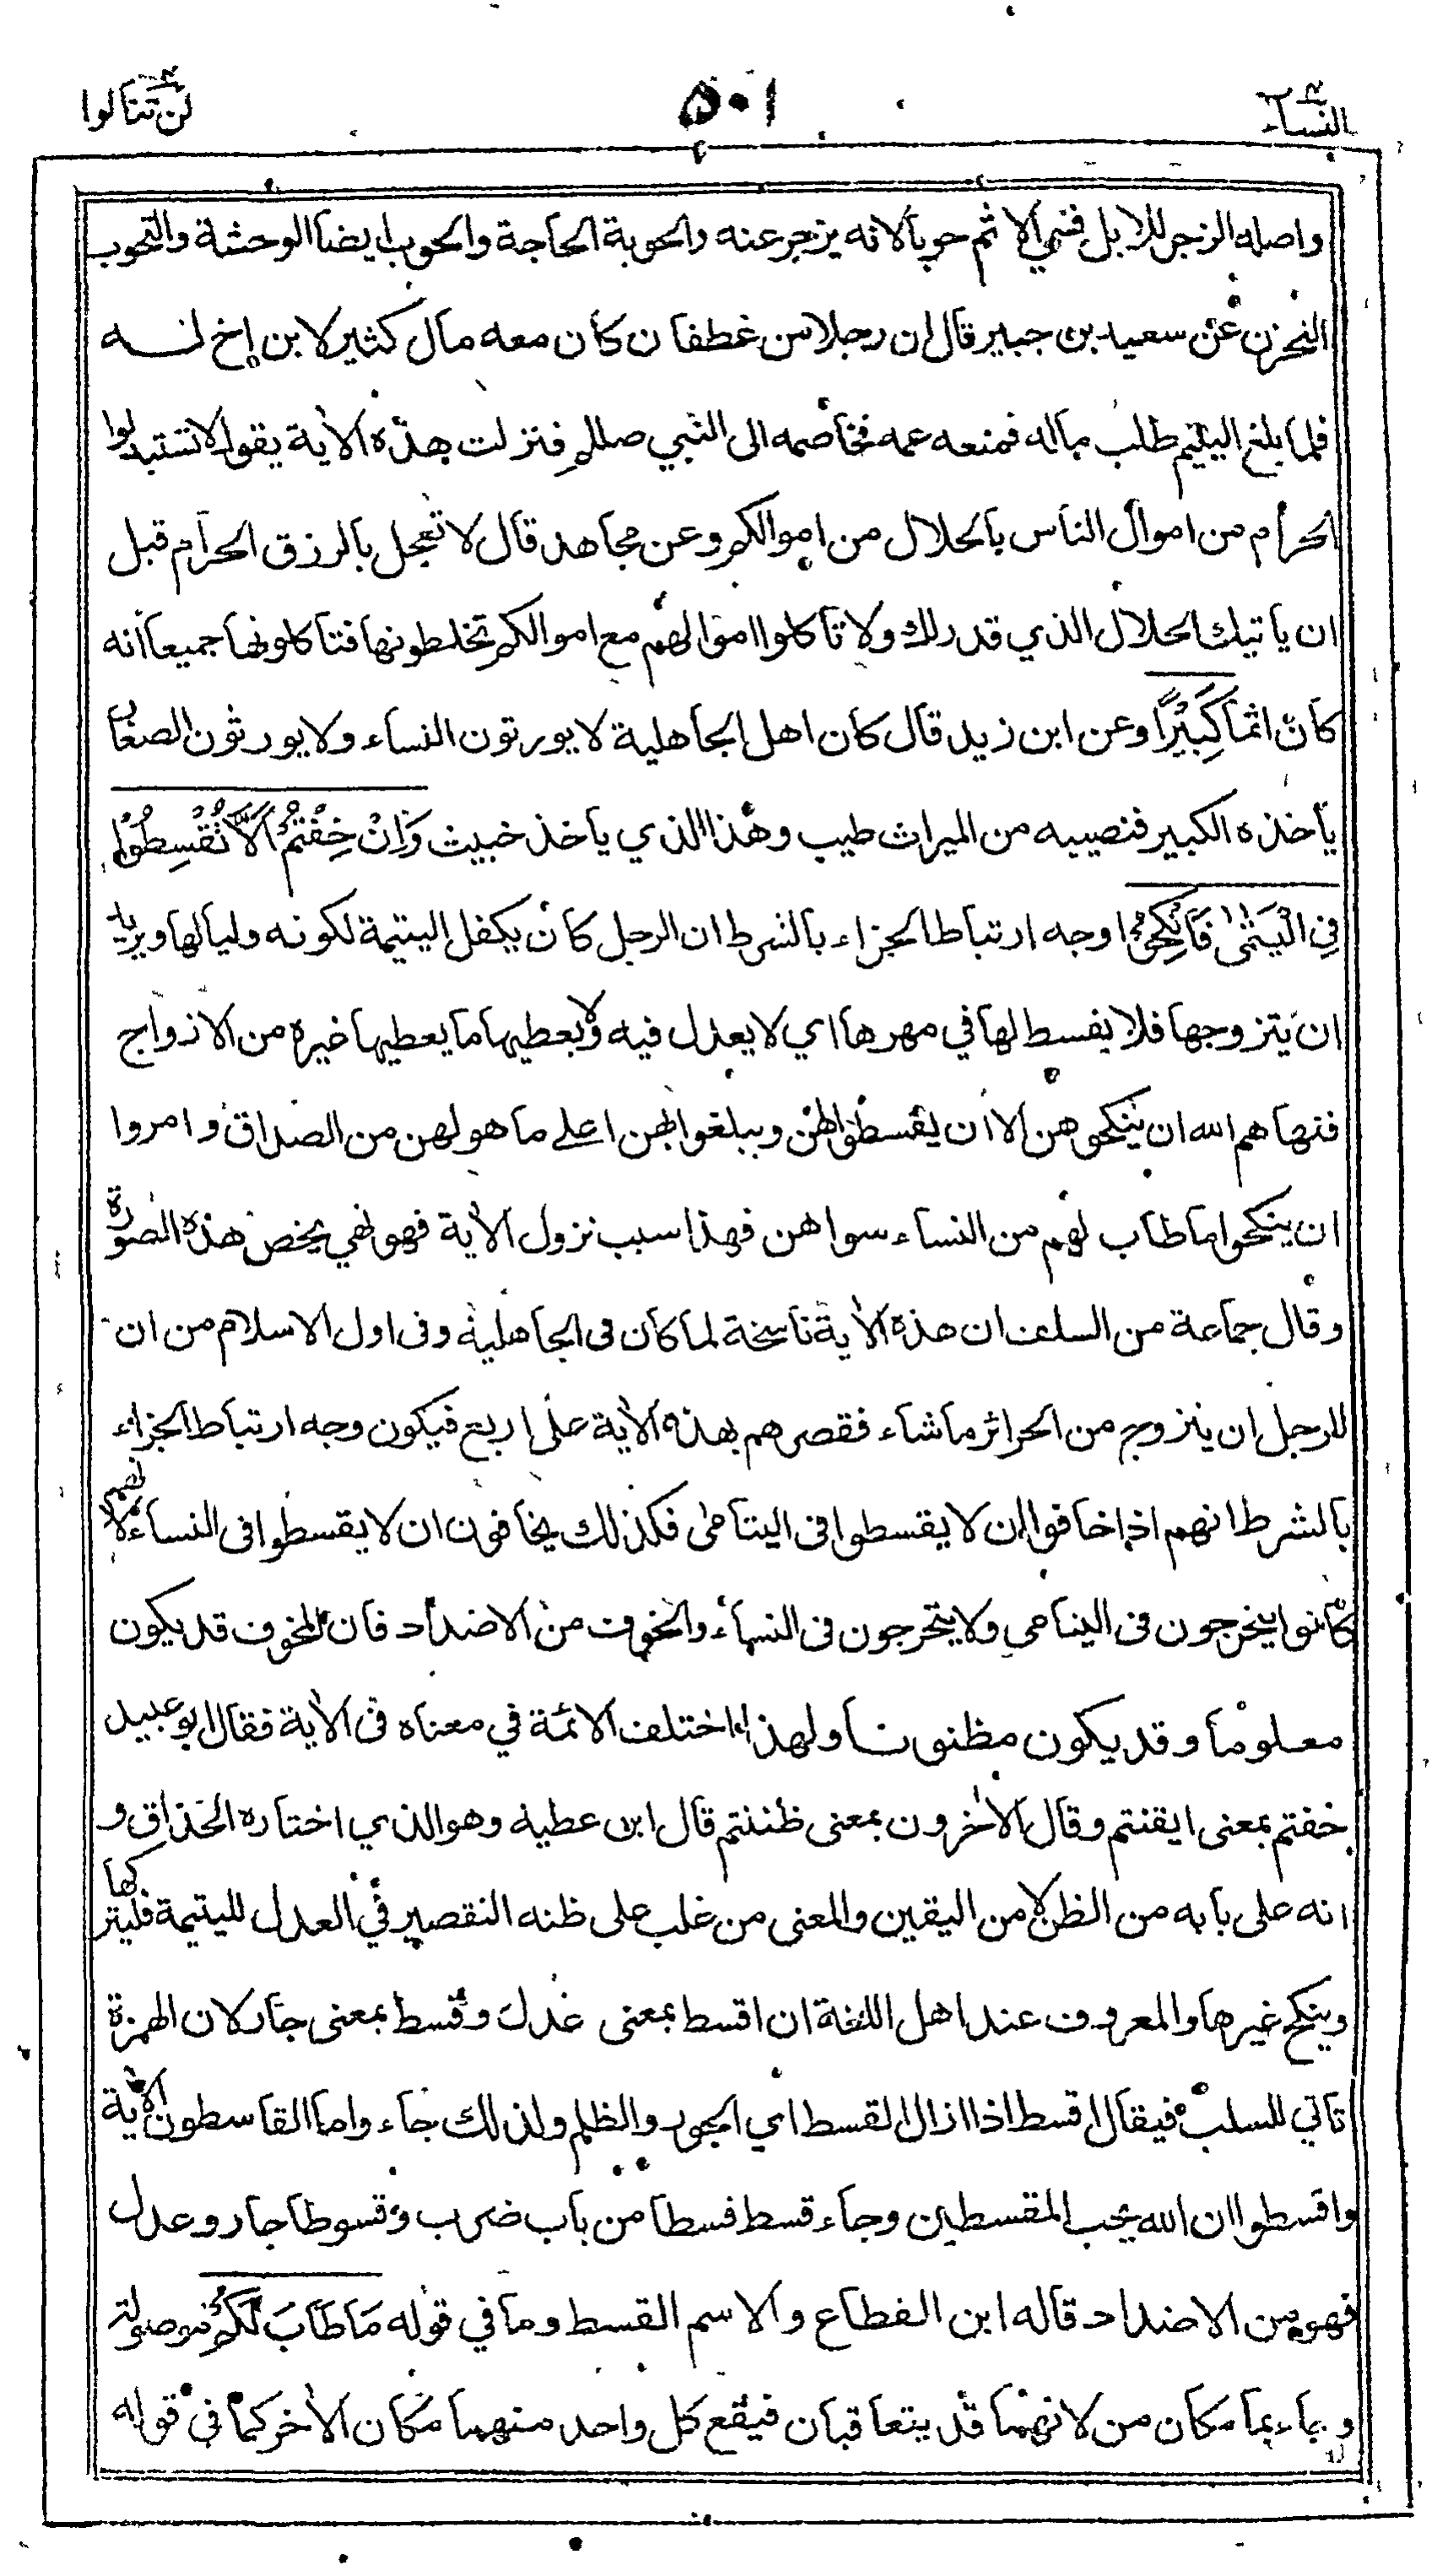 النساء ٤
٥٠١
لن تنالوا ٤
واصله الزجر للابل فسمي الاثم حوبا لانه يزجر عنه والحوبة الحاجة والحوب ايضا الوحشة والتحوب
التحزن عن سعيد بن جبير قال ان رجلا من غطفان كان معه مال كثير لابن اخ لـــه
فلما بلغ اليتيم طلب ماله فمنعه عمه فخاصمه الى النبي صللم فنزلت هذه الاية يقول لا تستبدلوا
الحرام من اموال الناس بالحلال من اموالكم وعن مجاهد قال لا تعجل بالرزق الحرام قبل
ان ياتيك الحلال الذي قدر لك ولا تاكلوا اموالهم مع اموالكم تخلطونها فتاكلونها جميعا انه
كان اثما كَبِيْرًا وعن ابن زيد قال كان اهل الجاهلية لا يورثون النساء ولا يورثون الصغار
ياخذه الكبير فنصيبه من الميراث طيب وهذا الذي ياخذ خبيث وَاِنْ خِفْتُمْ اَلَّا تُقْسِطُوْا
فِى الْيَتٰمٰى فَانْكِحُوْا وجه ارتباط الجزاء بالشرط ان الرجل كان يكفل اليتيمة لكونه وليا لها ويريد
ان يتزوجها فلا يقسط لها في مهرها اي لا يعدل فيه ولا يعطيها ما يعطيها غيره من الازواج
فنهاهم الله ان ينكحوهن الا ان يقسطوا لهن ويبلغوا لهن اعلى ما هو لهن من الصداق وامروا
ان ينكحوا ما طاب لهم من النساء سواهن فهذا سبب نزول الاية فهو نهي يخص هذه الصورة
وقال جماعة من السلف ان هذه الاية ناسخة لما كان فى الجاهلية وفى اول الاسلام من ان
للرجل ان يتزوج من الحرائر ما شاء فقصرهم بهذه الاية على اربع فيكون وجه ارتباط الجزاء
بالشرط انهم اذا خافوا ان لا يقسطوا فى اليتامى فكذلك يخافون ان لا يقسطوا فى النساء لانهم
كانوا يتحرجون فى اليتامى ولا يتحرجون فى النساء والخوف من الاضداد فان المخوف قد يكون
معلوما وقد يكون مظنونا ولهذا اختلف الائمة في معناه فى الاية فقال ابو عبيد
خفتم بمعنى ايقنتم وقال الاخرون بمعنى ظننتم قال ابن عطية وهو الذي اختاره الحذاق و
انه على بابه من الظن لا من اليقين والمعنى من غلب على ظنه التقصير في العدل لليتيمة فليتركها
وينكح غيرها والمعروف عند اهل اللغة ان اقسط بمعنى عدل وقسط بمعنى جار لان الهمزة
تاتي للسلب فيقال اقسط اذا ازال القسط اي الجور والظلم ولذلك جاء واما القاسطون الاية
واقسطوا ان الله يحب المقسطين وجاء قسط قسطا من باب ضرب وقسوطا جار وعدل
فهو من الاضداد قاله ابن القطاع والاسم القسط وما في قوله مَا طَابَ لَكُمْ موصولة
وجاء بما مكان من لانهما قد يتعاقبان فيقع كل واحد منهما مكان الاخر كما فى قوله